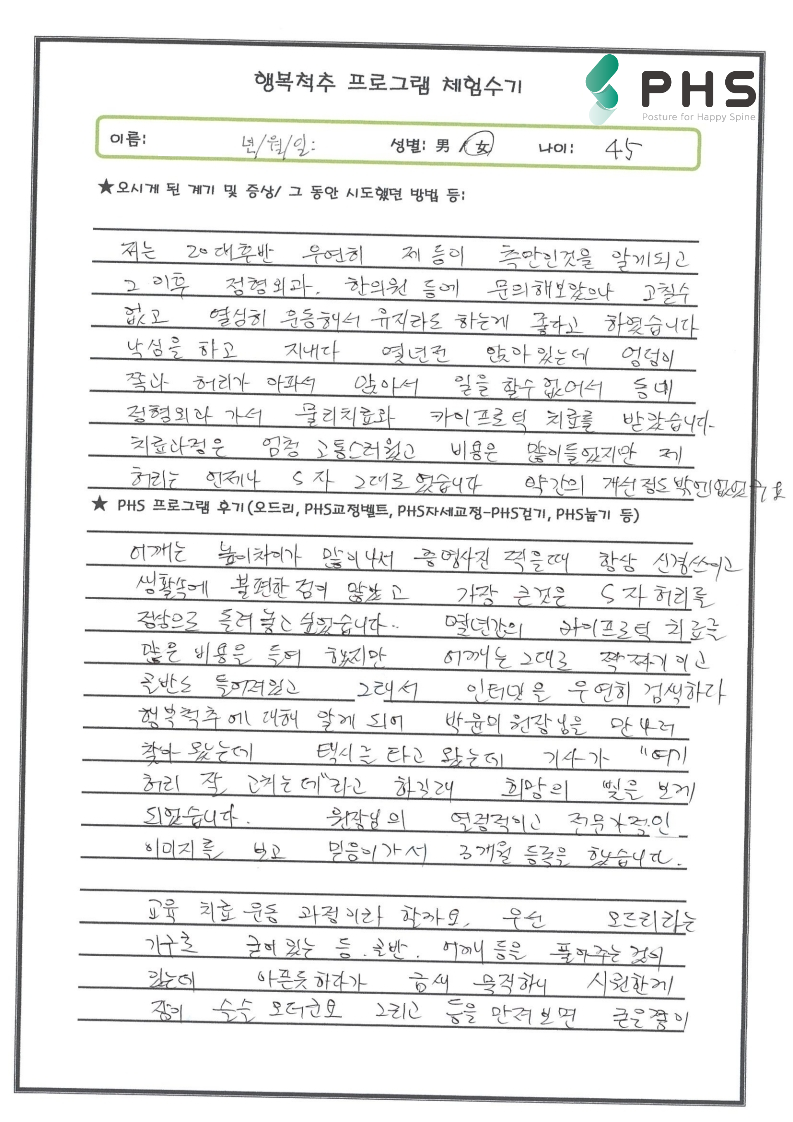 행복척추 프로그램 체험수기
PHS
Posture for Happy Spine
이름: 년/월/일: 성별: 男 / 女 나이: 45
★오시게 된 계기 및 증상/ 그 동안 시도했던 방법 등:
저는 20대후반 우연히 제 등이 측만인것을 알게되고
그 이후 정형외과, 한의원 등에 문의해보았으나 고칠수
없고 열심히 운동해서 유지라도 하는게 좋다고 하였습니다
낙심을 하고 지내다 몇년전 앉아있는데 엉덩이
쪽과 허리가 아파서 앉아서 일을 할수없어서 동네
정형외과 가서 물리치료와 카이프로틱 치료를 받았습니다.
치료과정은 엄청 고통스러웠고 비용은 많이들었지만 제
허리는 언제나 S자 그대로였습니다 약간의 개선정도밖엔
★ PHS 프로그램 후기(오드리, PHS교정벨트, PHS자세교정-PHS걷기, PHS눕기 등)
어깨는 높이차이가 많이나서 증명사진 찍을때 항상 신경쓰이고
생활속에 불편한 점이 많았고 가장 큰것은 S자허리를
정상으로 돌려놓고 싶었습니다.. 몇년간의 카이프로틱 치료를
많은 비용을 들여 했지만 어깨는 그대로 짝짜기이고
골반도 틀어져있고 그래서 인터넷을 우연히 검색하다
행복척추에 대해 알게 되어 박윤미원장님을 만나러
찾아 왔는데 택시를 타고 왔는데 기사가 "여기
허리 잘 고치는데"라고 하길래 희망의 빛을 보게
되었습니다. 원장님의 열정적이고 전문가적인
이미지를 보고 믿음이가서 3개월 등록을 했습니다.
교육 치료 운동 과정이라 할까요, 우선 오드리라는
기구로 굳어있는 등.골반. 어깨 등을 풀어주는 것이
있는데 아픈듯하다가 금새 묵직하니 시원한게
잠이 솔솔 오더군요 그리고 등을 만져보면